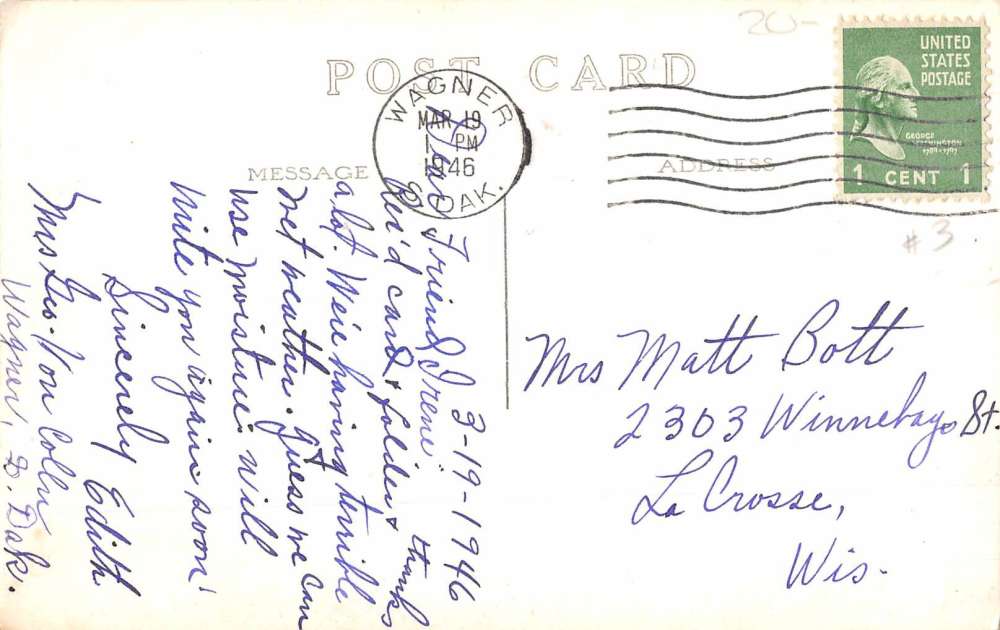 20-
POST CARD
WAGNER
MAR 19
1 PM
1946
S. DAK.
UNITED
STATES
POSTAGE
GEORGE
WASHINGTON
1789-1797
1 CENT 1
MESSAGE
ADDRESS
#3
3-19-1946
Dear Friend Irene:
Rec'd card & folder thanks
a lot. We're having terrible
wet weather. guess we can
use moisture. Will
write you again soon!
Sincerely Edith
Mrs Geo. Von
Wagner, S. Dak.
Mrs Matt Bott
2303 Winnebago St.
La Crosse,
Wis.